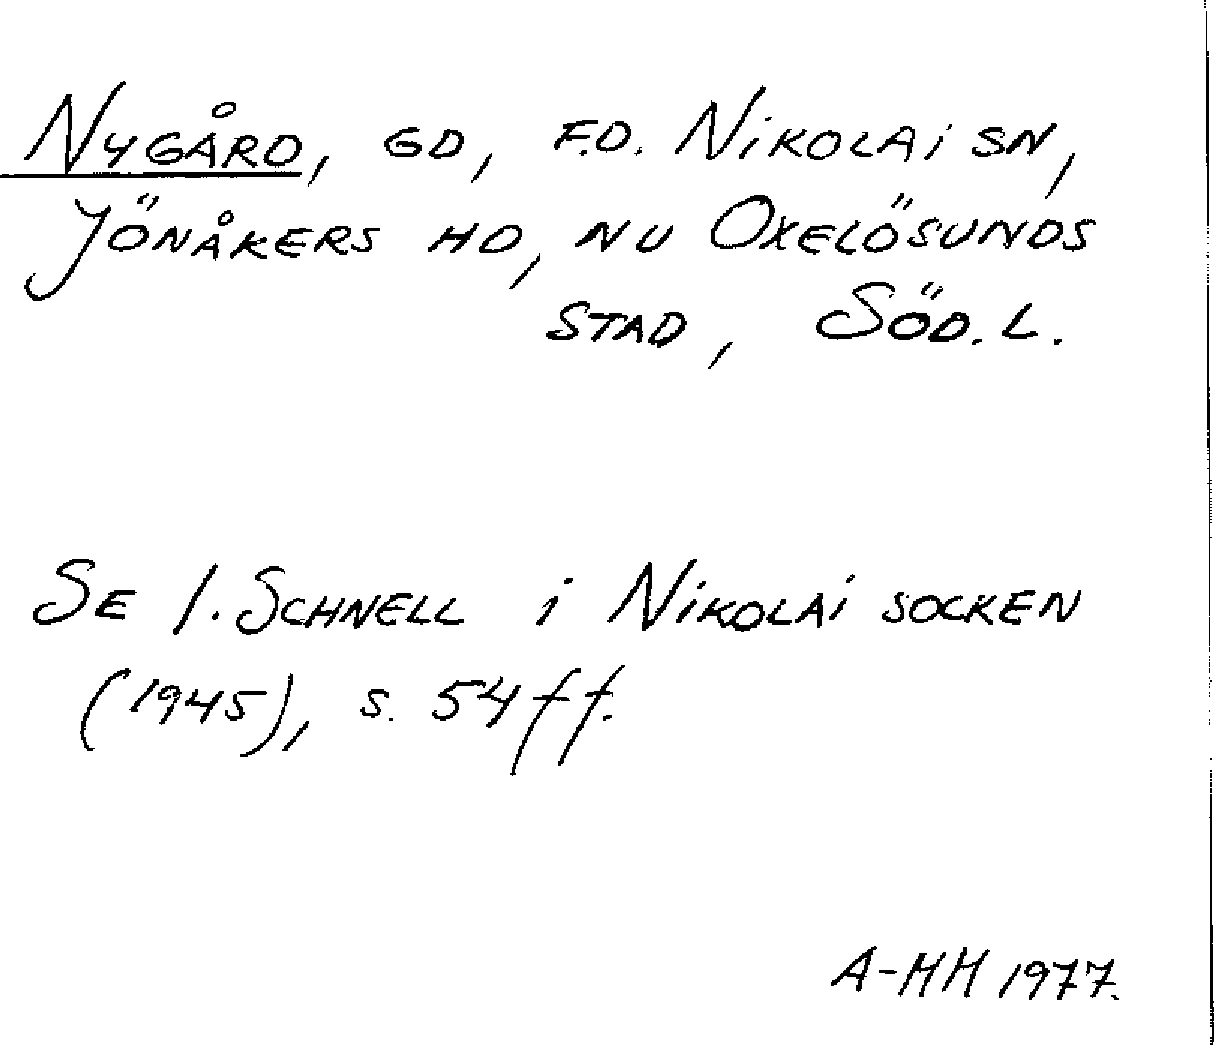 Nygård, gd, f.d. Nikolai sn,
Jönåkers hd, nu Oxelösunds
stad, Söd. l.
Se I. Schnell i Nikolai socken
(1945), s. 54 ff.
A-MH 1977.